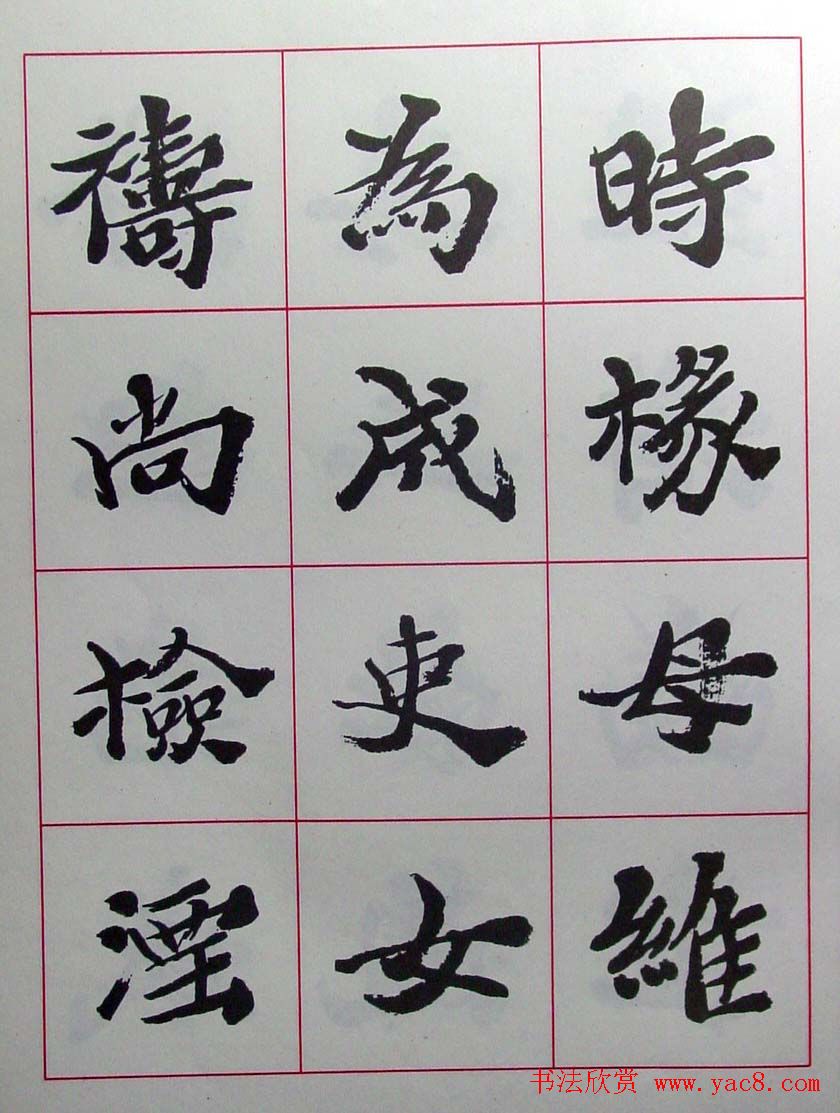 時椽母維
為成吏女
禱尚檢湮
书法欣赏 www.yac8.com